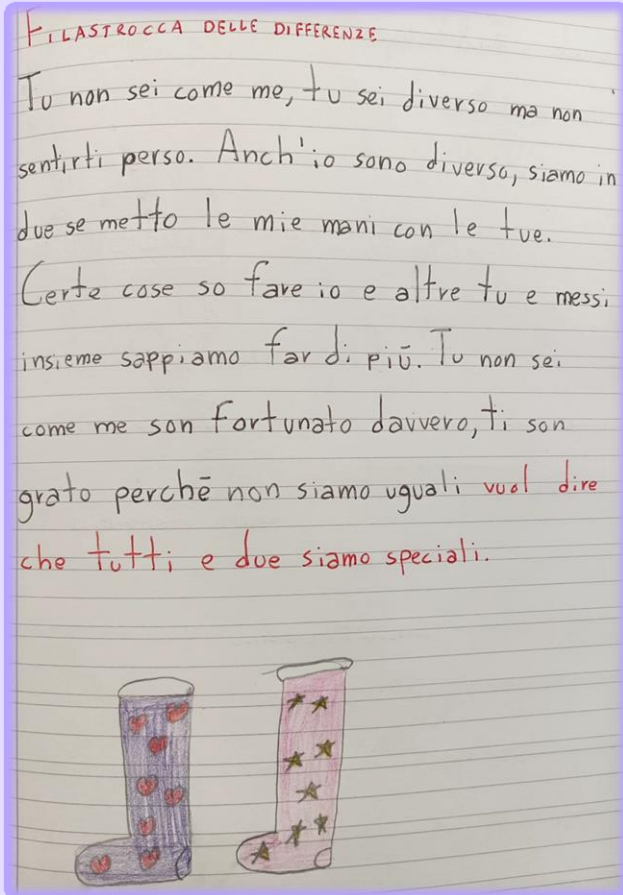 FILASTROCCA DELLE DIFFERENZE
Tu non sei come me, tu sei diverso ma non
sentirti perso. Anch'io sono diverso, siamo in
due se metto le mie mani con le tue.
Certe cose so fare io e altre tu e messi
insieme sappiamo far di più. Tu non sei
come me son fortunato davvero, ti son
grato perchē non siamo uguali vuol dire
che tutti e due siamo speciali.